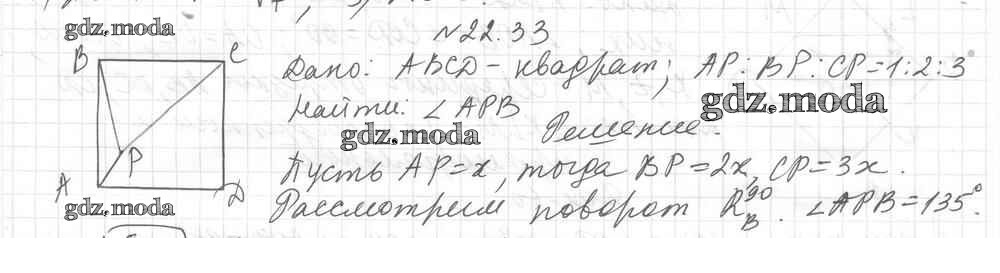 gdz.moda
№22.33
B C
Дано: ABCD - квадрат; AP:BP:CP=1:2:3
gdz.moda
Найти: ∠APB
gdz.moda
Решение.
P
Пусть AP=x, тогда BP=2x, CP=3x.
A D
gdz.moda
Рассмотрим поворот R_B^90. ∠APB=135°.